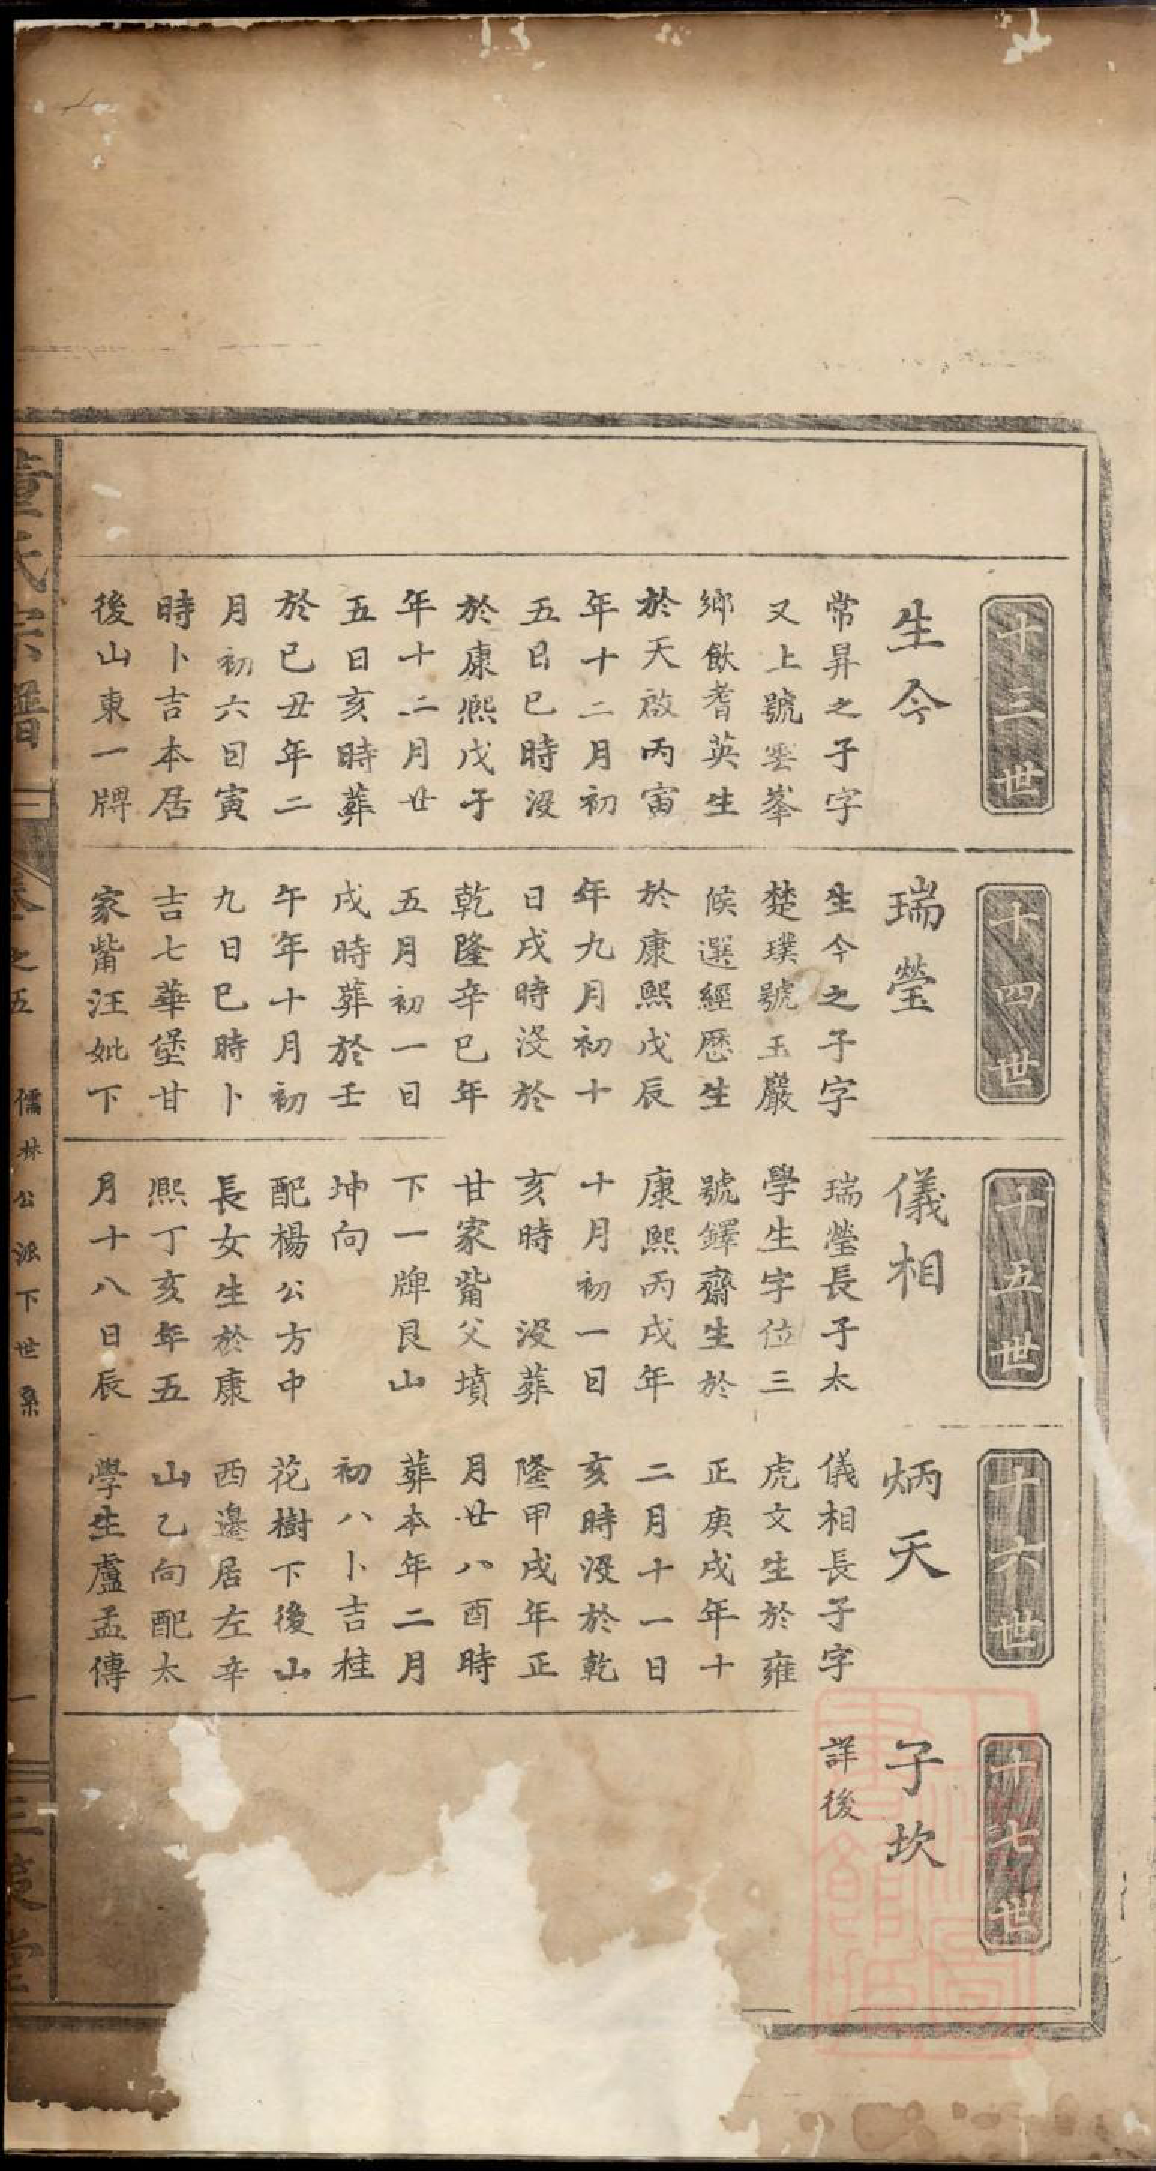 十三世
生今
常昇之子字
又上號雲峯
鄉飲耆英生
於天啟丙寅
年十二月初
五日巳時沒
於康熙戊子
年十二月廿
五日亥時葬
於己丑年二
月初六日寅
時卜吉本居
後山東一牌
十四世
瑞瑩
生今之子字
楚璞號玉嚴
候選經歷生
於康熙戊辰
年九月初十
日戌時沒於
乾隆辛巳年
五月初一日
戌時葬於壬
午年十月初
九日巳時卜
吉七華堡甘
家觜汪妣下
十五世
儀相
瑞瑩長子太
學生字位三
號鐸齋生於
康熙丙戌年
十月初一日
亥時 沒葬
甘家觜父墳
下一牌艮山
坤向
配楊公方中
長女生於康
熙丁亥年五
月十八日辰
十六世
炳天
儀相長子字
虎文生於雍
正庚戌年十
二月十一日
亥時沒於乾
隆甲戌年正
月廿八酉時
葬本年二月
初八卜吉桂
花樹下後山
西邊居左辛
山乙向配太
學生盧孟傳
十七世
子坎
詳後
氏宗譜
卷之五
儒林公派下世系
一